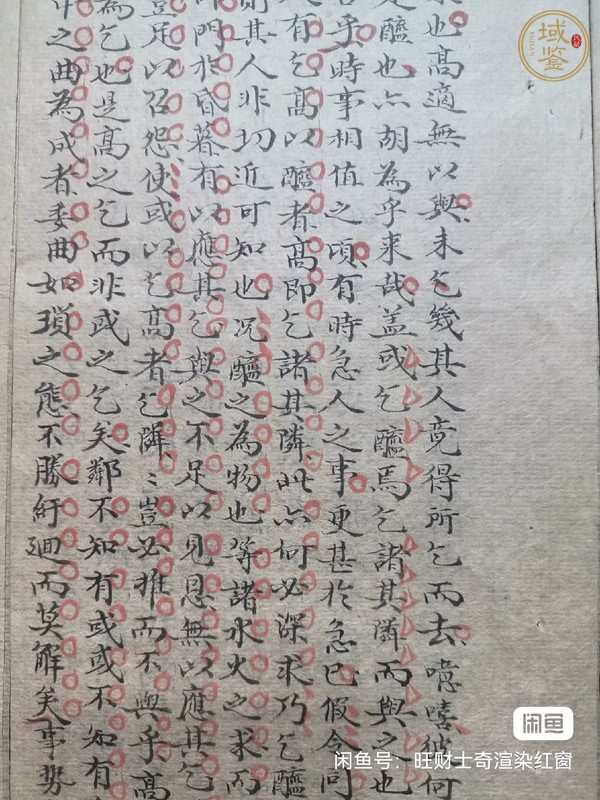 也高適無以與未乞幾其人竟得所乞而去噫嘻彼何
醯也亦胡為乎來哉蓋或乞醯焉乞諸其隣而與之也
乎時事相值之頃有時急人之事更甚於急已假令同
有乞高以醯者高即乞諸其隣此亦何必深求乃乞醯
其人非切近可知也況醯之為物也等諸水火之求而
門於昏暮有以應其乞與之不足以見恩無以應其乞
豈足以召怨使或以乞高者乞隣〻豈必推而不與乎高
為乞也是高之乞而非或之乞矣鄰不知有或或不知有
中之曲為成者委曲如瑣之態不勝紆迴而莫解矣事勢
域鑒
闲鱼
闲鱼号：旺财士奇渲染红窗